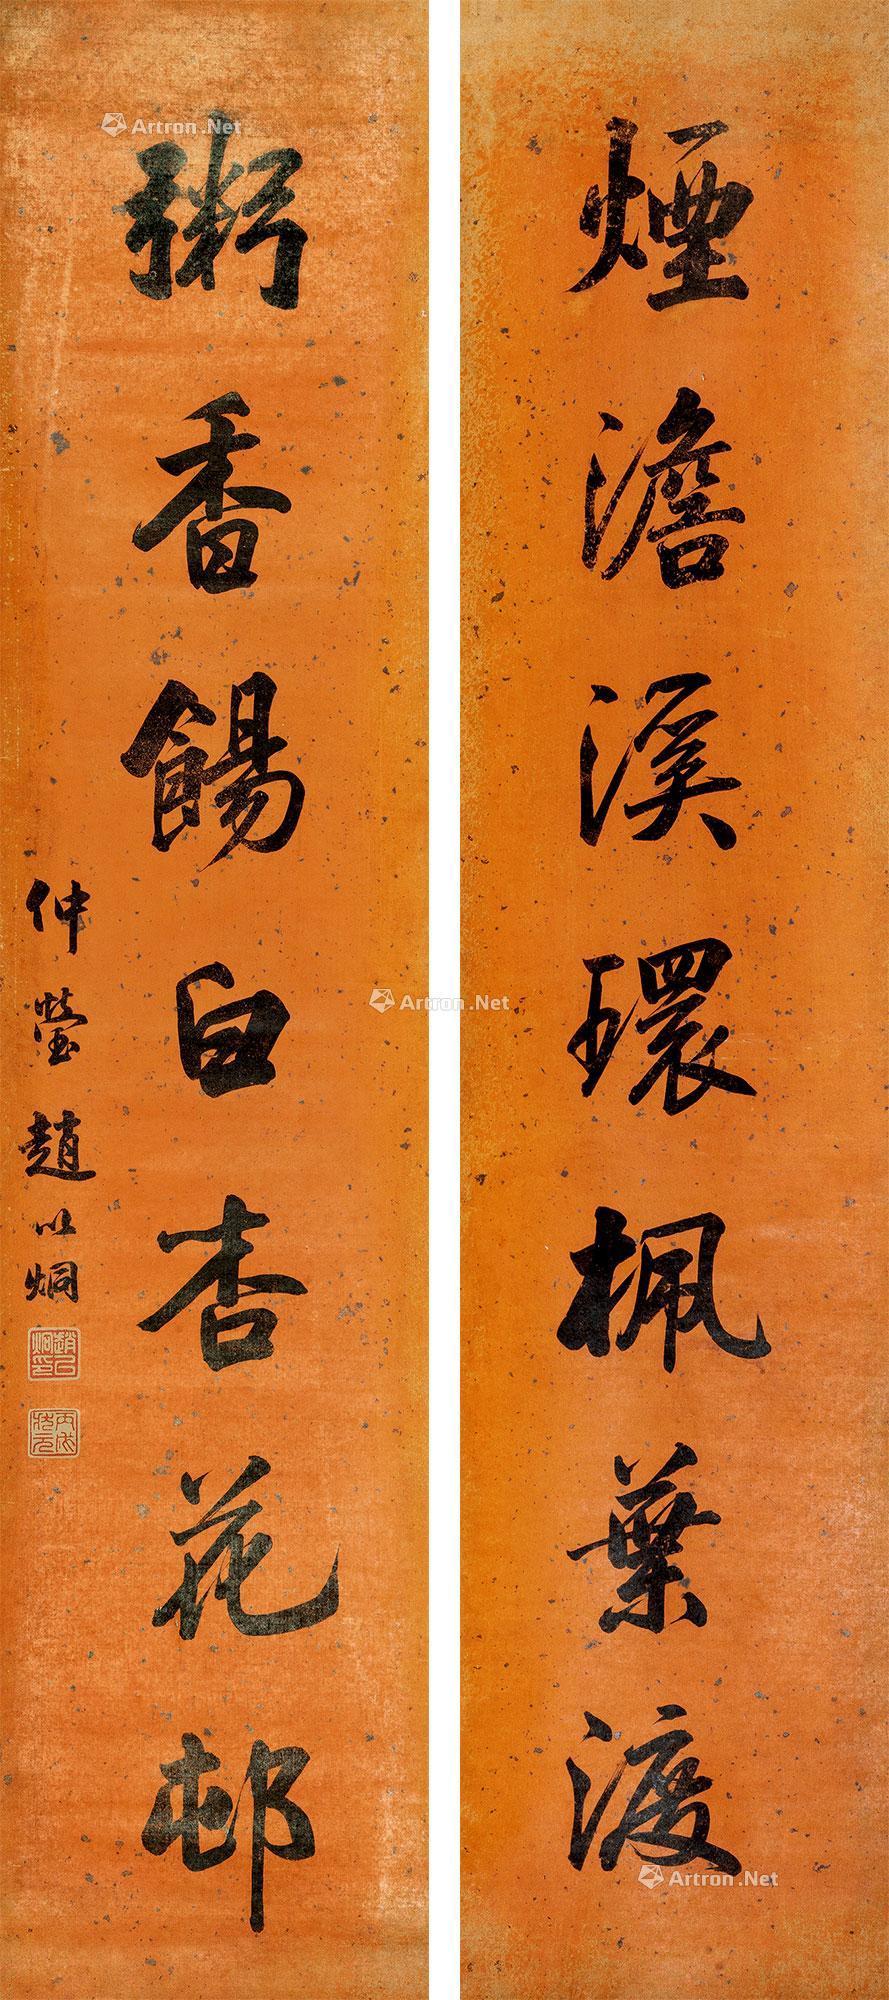 煙澹溪環楓葉渡
粥香餳白杏花邨
仲瑩趙以炯
趙以炯印
丙戌狀元
Artron.Net
Artron.Net
Artron.Net